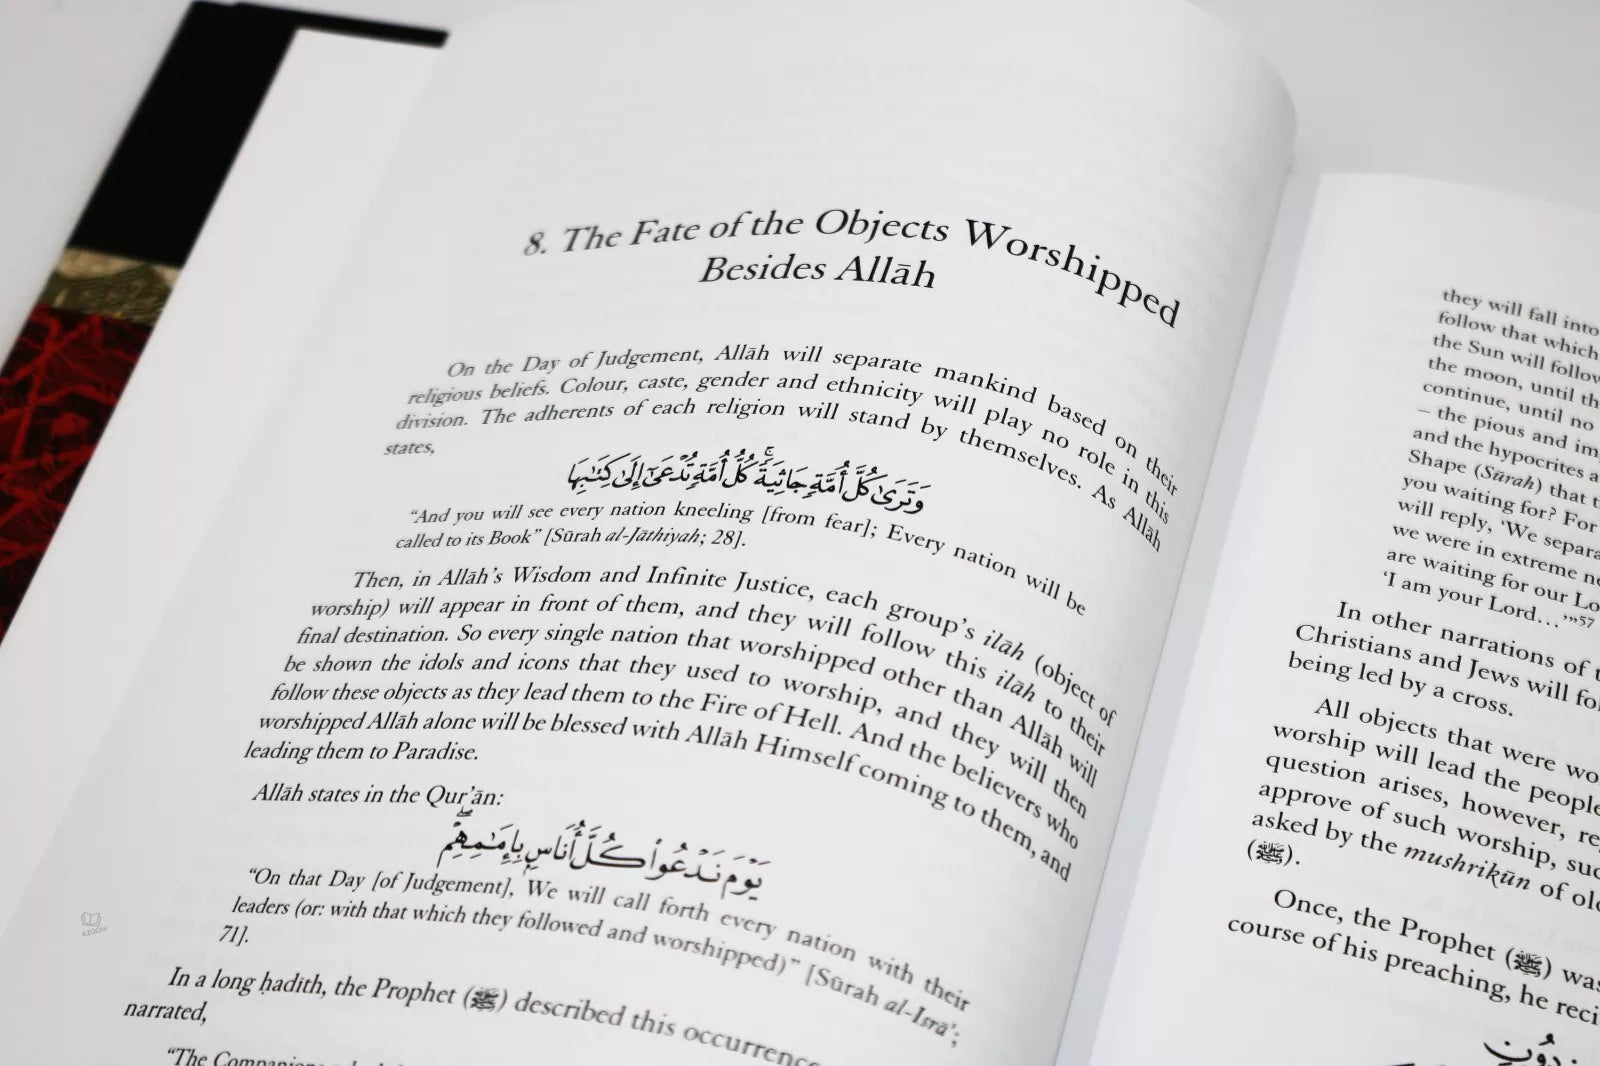 8. The Fate of the Objects Worshipped
Besides Allāh
On the Day of Judgement, Allāh will separate mankind based on their
religious beliefs. Colour, caste, gender and ethnicity will play no role in this
division. The adherents of each religion will stand by themselves. As Allāh
states,
وَتَرَىٰ كُلَّ أُمَّةٍ جَاثِيَةً ۚ كُلُّ أُمَّةٍ تُدْعَىٰٓ إِلَىٰ كِتَٰبِهَا
“And you will see every nation kneeling [from fear]; Every nation will be
called to its Book” [Sūrah al-Jāthiyah; 28].
Then, in Allāh’s Wisdom and Infinite Justice, each group’s ilāh (object of
worship) will appear in front of them, and they will follow this ilāh to their
final destination. So every single nation that worshipped other than Allāh will
be shown the idols and icons that they used to worship, and they will then
follow these objects as they lead them to the Fire of Hell. And the believers who
worshipped Allāh alone will be blessed with Allāh Himself coming to them, and
leading them to Paradise.
Allāh states in the Qur’ān:
يَوْمَ نَدْعُوا۟ كُلَّ أُنَاسٍۭ بِإِمَٰمِهِمْ ۖ
“On that Day [of Judgement], We will call forth every nation with their
leaders (or: with that which they followed and worshipped)” [Sūrah al-Isrā’;
71].
In a long ḥadith, the Prophet (ﷺ) described this occurrence
narrated,
“The Companions
they will fall into
follow that which
the Sun will follow
the moon, until th
continue, until no
– the pious and im
and the hypocrites a
Shape (Sūrah) that t
you waiting for? For
will reply, ‘We separa
we were in extreme ne
are waiting for our Lo
‘I am your Lord…’”57
In other narrations of t
Christians and Jews will fol
being led by a cross.
All objects that were wo
worship will lead the people
question arises, however, re
approve of such worship, suc
asked by the mushrikūn of old
(ﷺ).
Once, the Prophet (ﷺ) was
course of his preaching, he reci